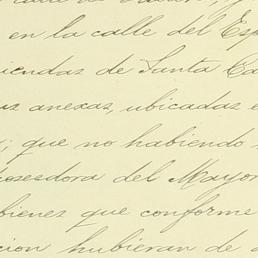 en la calle del Esp
iendas de Santa Ca
us anexas, ubicadas e
; que no habiendo
oseedora del Mayor
bienes que conforme
cion hubieran de